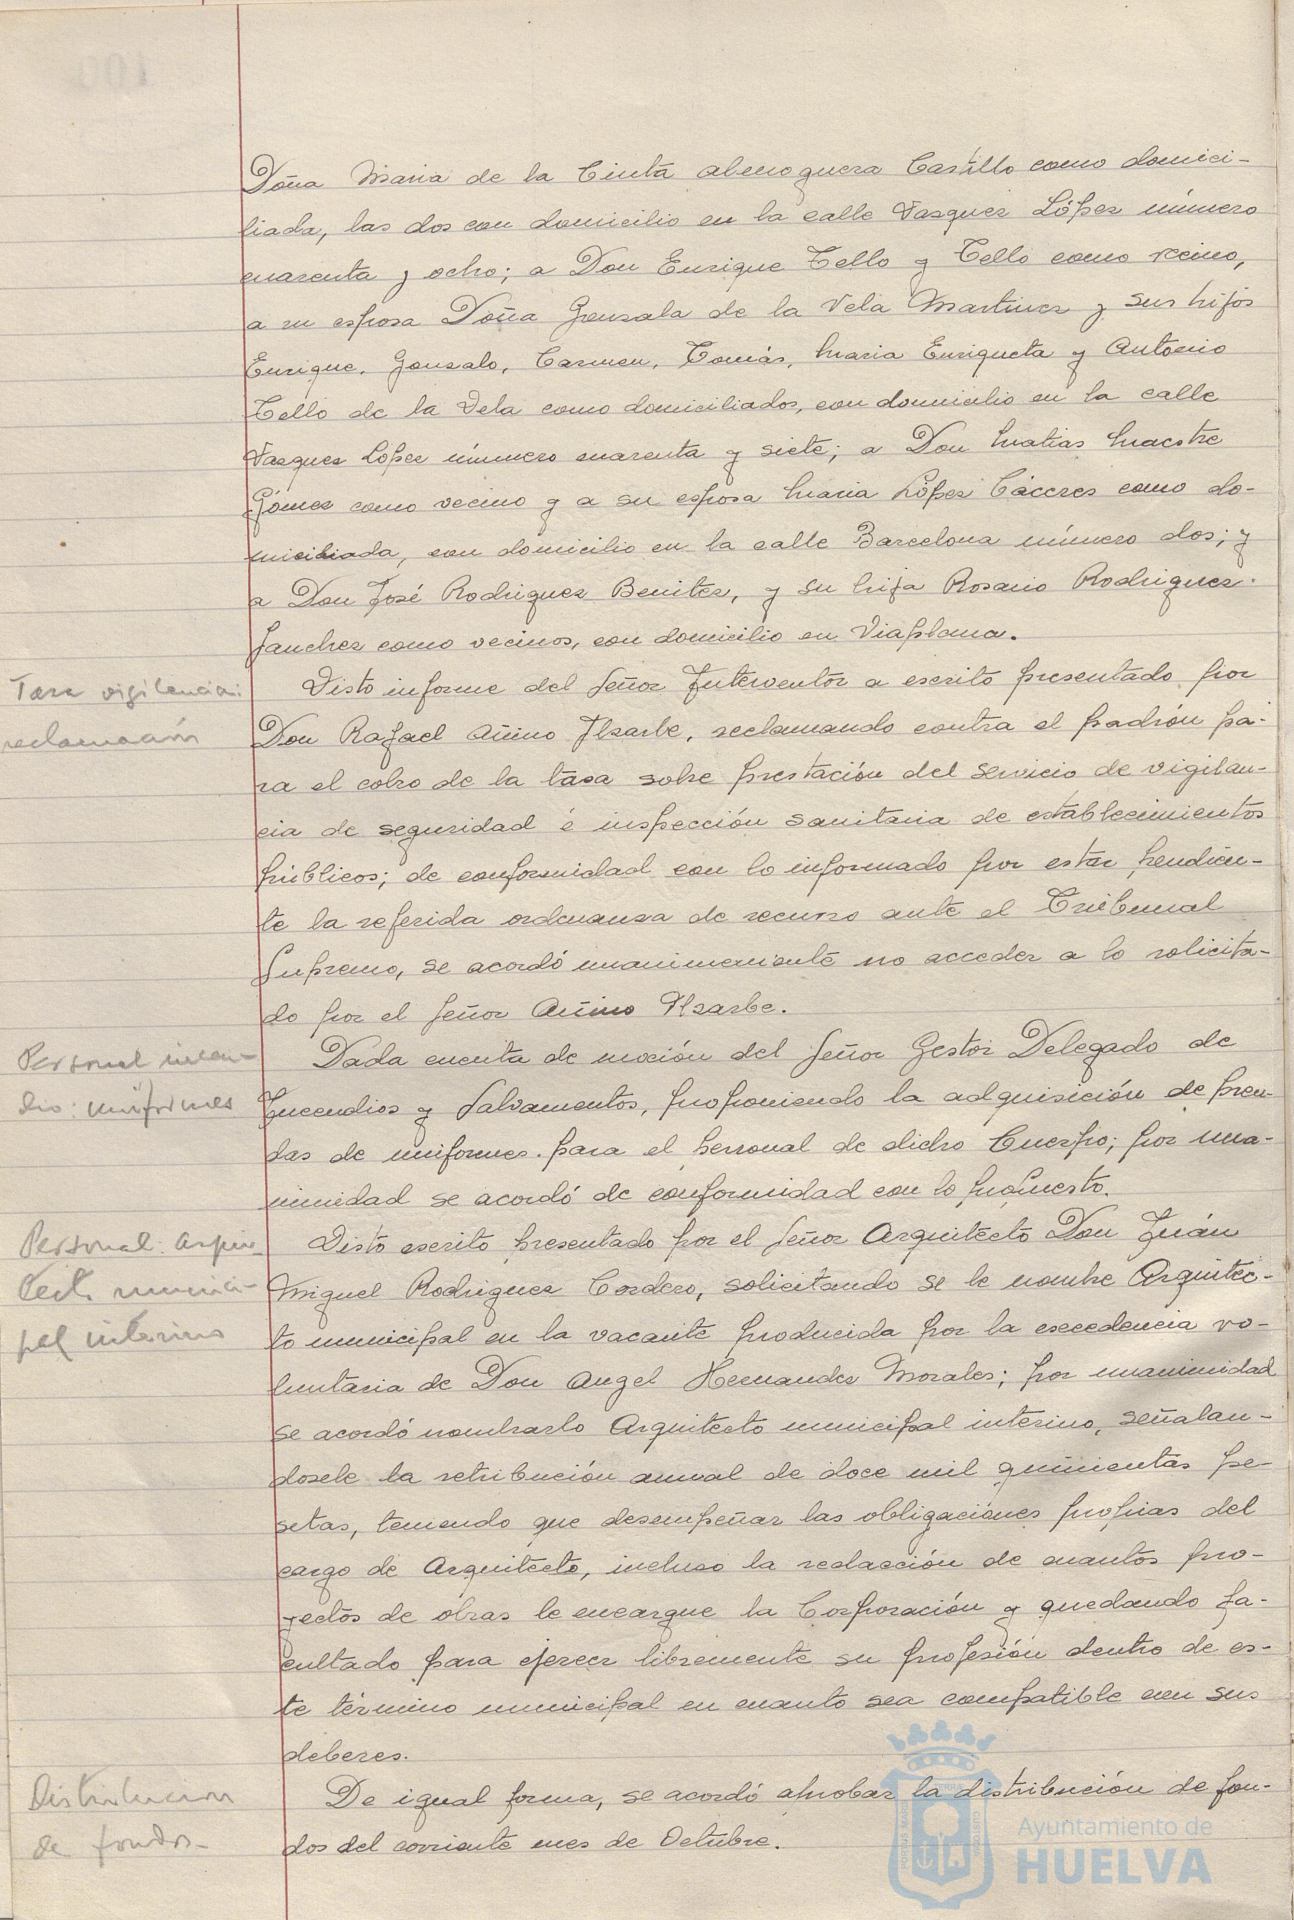 Doña Maria de la Cinta Almoguera Castillo como domici-
liada, las dos con domicilio en la calle Vasquez López número
cuarenta y ocho; a Don Enrique Tello y Tello como vecino,
a su esposa Doña Gonzala de la Vela Martinez y sus hijos
Enrique, Gonzalo, Carmen, Tomás, Maria Enriqueta y Antonio
Tello de la Vela como domiciliados, con domicilio en la calle
Vasquez López número cuarenta y siete; a Don Matias Maestre
Gómez como vecino y a su esposa Maria López Cáceres como do-
miciliada, con domicilio en la calle Barcelona número dos; y
a Don José Rodriguez Benitez, y su hija Rosario Rodriguez
Sanchez como vecinos, con domicilio en Viaplana.
Tasa vigilencia:
reclamación
Visto informe del Señor Interventor a escrito presentado por
Don Rafael Aúino Ilzarbe, reclamando contra el padrón pa-
ra el cobro de la tasa sobre prestación del servicio de vigilan-
cia de seguridad é inspección sanitaria de establecimientos
públicos; de conformidad con lo informado por estar pendien-
te la referida ordenanza de recurso ante el Tribunal
Supremo, se acordó unanimemente no acceder a lo solicita-
do por el Señor Aúino Ilzarbe.
Personal incen-
dio: uniformes
Dada cuenta de moción del Señor Gestor Delegado de
Incendios y Salvamentos, proponiendo la adquisición de pren-
das de uniformes para el personal de dicho Cuerpo; por una-
nimidad se acordó de conformidad con lo propuesto.
Personal: arqui-
tecto munici-
pal interino
Visto escrito presentado por el Señor Arquitecto Don Juán
Miguel Rodriguez Cordero, solicitando se le nombre Arquitec-
to municipal en la vacante producida por la excedencia vo-
luntaria de Don Angel Hernandez Morales; por unanimidad
se acordó nombrarlo Arquitecto municipal interino, señalan-
dosele la retribución anual de doce mil quinientas pe-
setas, teniendo que desempeñar las obligaciones propias del
cargo de Arquitecto, incluso la redacción de cuantos pro-
yectos de obras le encargue la Corporación y quedando fa-
cultado para ejercer libremente su profesión dentro de es-
te término municipal en cuanto sea compatible con sus
deberes.
Distribucion
de fondos-
De igual forma, se acordó aprobar la distribución de fon-
dos del corriente mes de Octubre.
Ayuntamiento de
HUELVA